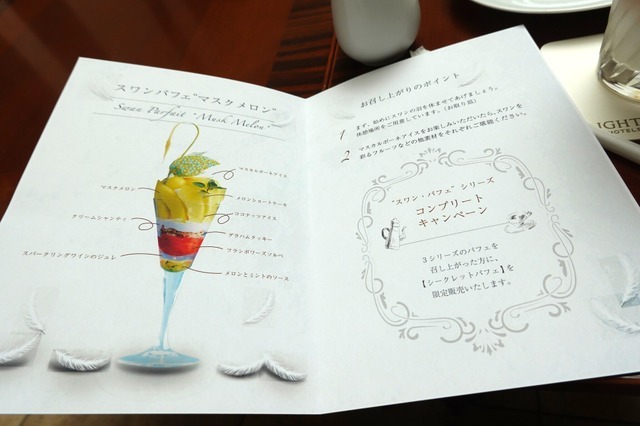 スワンパフェ"マスクメロン"
Swan Parfait "Musk Melon"
マスカルポーネアイス
マスクメロン
メロンショートケーキ
ココナッツアイス
クリームシャンティ
グラハムクッキー
フランボワーズソルベ
スパークリングワインのジュレ
メロンとミントのソース
お召し上がりのポイント
1 まず、始めにスワンの羽を休ませてあげましょう。
休憩場所をご用意しています。(お取り皿)
2 マスカルポーネアイスをお楽しみいただいたら、スワンを
彩るフルーツなどの他素材をそれぞれご堪能ください。
"スワン・パフェ" シリーズ
コンプリート
キャンペーン
3シリーズのパフェを
召し上がった方に、
【シークレットパフェ】を
限定販売いたします。
IGHT
HOTEL